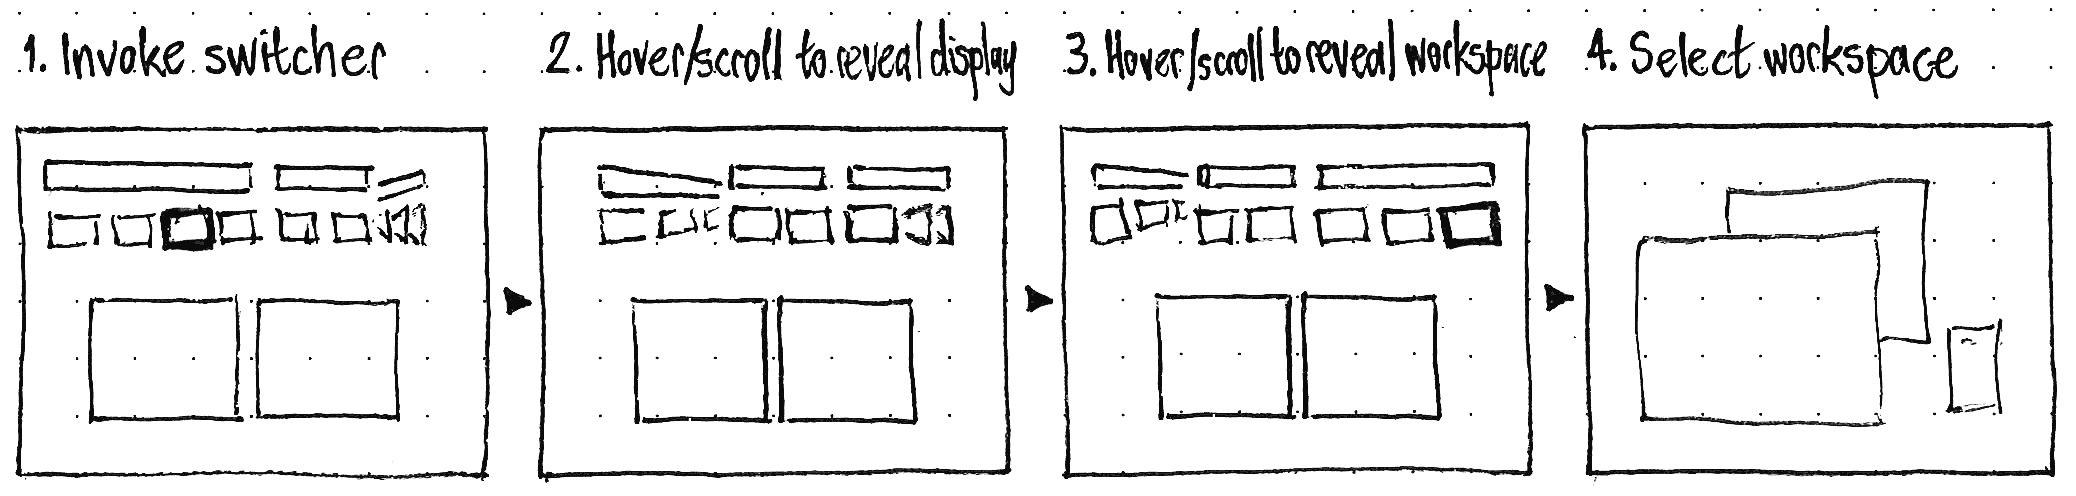 1. Invoke switcher
2. Hover/scroll to reveal display
3. Hover/scroll to reveal workspace
4. Select workspace